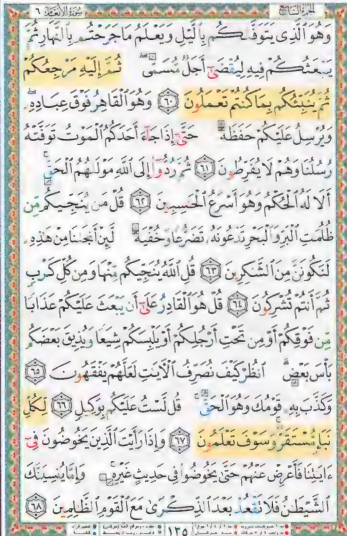 سُورَةُ الأَنْعَامِ ٦
وَهُوَ ٱلَّذِى يَتَوَفَّىٰكُم بِٱلَّيْلِ وَيَعْلَمُ مَا جَرَحْتُم بِٱلنَّهَارِ ثُمَّ
يَبْعَثُكُمْ فِيهِ لِيُقْضَىٰٓ أَجَلٌ مُّسَمًّى ۖ ثُمَّ إِلَيْهِ مَرْجِعُكُمْ
ثُمَّ يُنَبِّئُكُم بِمَا كُنتُمْ تَعْمَلُونَ ٦٠ وَهُوَ ٱلْقَاهِرُ فَوْقَ عِبَادِهِۦ ۖ
وَيُرْسِلُ عَلَيْكُمْ حَفَظَةً حَتَّىٰٓ إِذَا جَآءَ أَحَدَكُمُ ٱلْمَوْتُ تَوَفَّتْهُ
رُسُلُنَا وَهُمْ لَا يُفَرِّطُونَ ٦١ ثُمَّ رُدُّوٓا۟ إِلَى ٱللَّهِ مَوْلَىٰهُمُ ٱلْحَقِّ ۚ
أَلَا لَهُ ٱلْحُكْمُ وَهُوَ أَسْرَعُ ٱلْحَٰسِبِينَ ٦٢ قُلْ مَن يُنَجِّيكُم مِّن
ظُلُمَٰتِ ٱلْبَرِّ وَٱلْبَحْرِ تَدْعُونَهُۥ تَضَرُّعًا وَخُفْيَةً لَّئِنْ أَنجَىٰنَا مِنْ هَٰذِهِۦ
لَنَكُونَنَّ مِنَ ٱلشَّٰكِرِينَ ٦٣ قُلِ ٱللَّهُ يُنَجِّيكُم مِّنْهَا وَمِن كُلِّ كَرْبٍ
ثُمَّ أَنتُمْ تُشْرِكُونَ ٦٤ قُلْ هُوَ ٱلْقَادِرُ عَلَىٰٓ أَن يَبْعَثَ عَلَيْكُمْ عَذَابًا
مِّن فَوْقِكُمْ أَوْ مِن تَحْتِ أَرْجُلِكُمْ أَوْ يَلْبِسَكُمْ شِيَعًا وَيُذِيقَ بَعْضَكُم
بَأْسَ بَعْضٍ ۗ ٱنظُرْ كَيْفَ نُصَرِّفُ ٱلْءَايَٰتِ لَعَلَّهُمْ يَفْقَهُونَ ٦٥
وَكَذَّبَ بِهِۦ قَوْمُكَ وَهُوَ ٱلْحَقُّ ۚ قُل لَّسْتُ عَلَيْكُم بِوَكِيلٍ ٦٦ لِّكُلِّ
نَبَإٍ مُّسْتَقَرٌّ ۚ وَسَوْفَ تَعْلَمُونَ ٦٧ وَإِذَا رَأَيْتَ ٱلَّذِينَ يَخُوضُونَ فِىٓ
ءَايَٰتِنَا فَأَعْرِضْ عَنْهُمْ حَتَّىٰ يَخُوضُوا۟ فِى حَدِيثٍ غَيْرِهِۦ ۚ وَإِمَّا يُنسِيَنَّكَ
ٱلشَّيْطَٰنُ فَلَا تَقْعُدْ بَعْدَ ٱلذِّكْرَىٰ مَعَ ٱلْقَوْمِ ٱلظَّٰلِمِينَ ٦٨
١٣٥